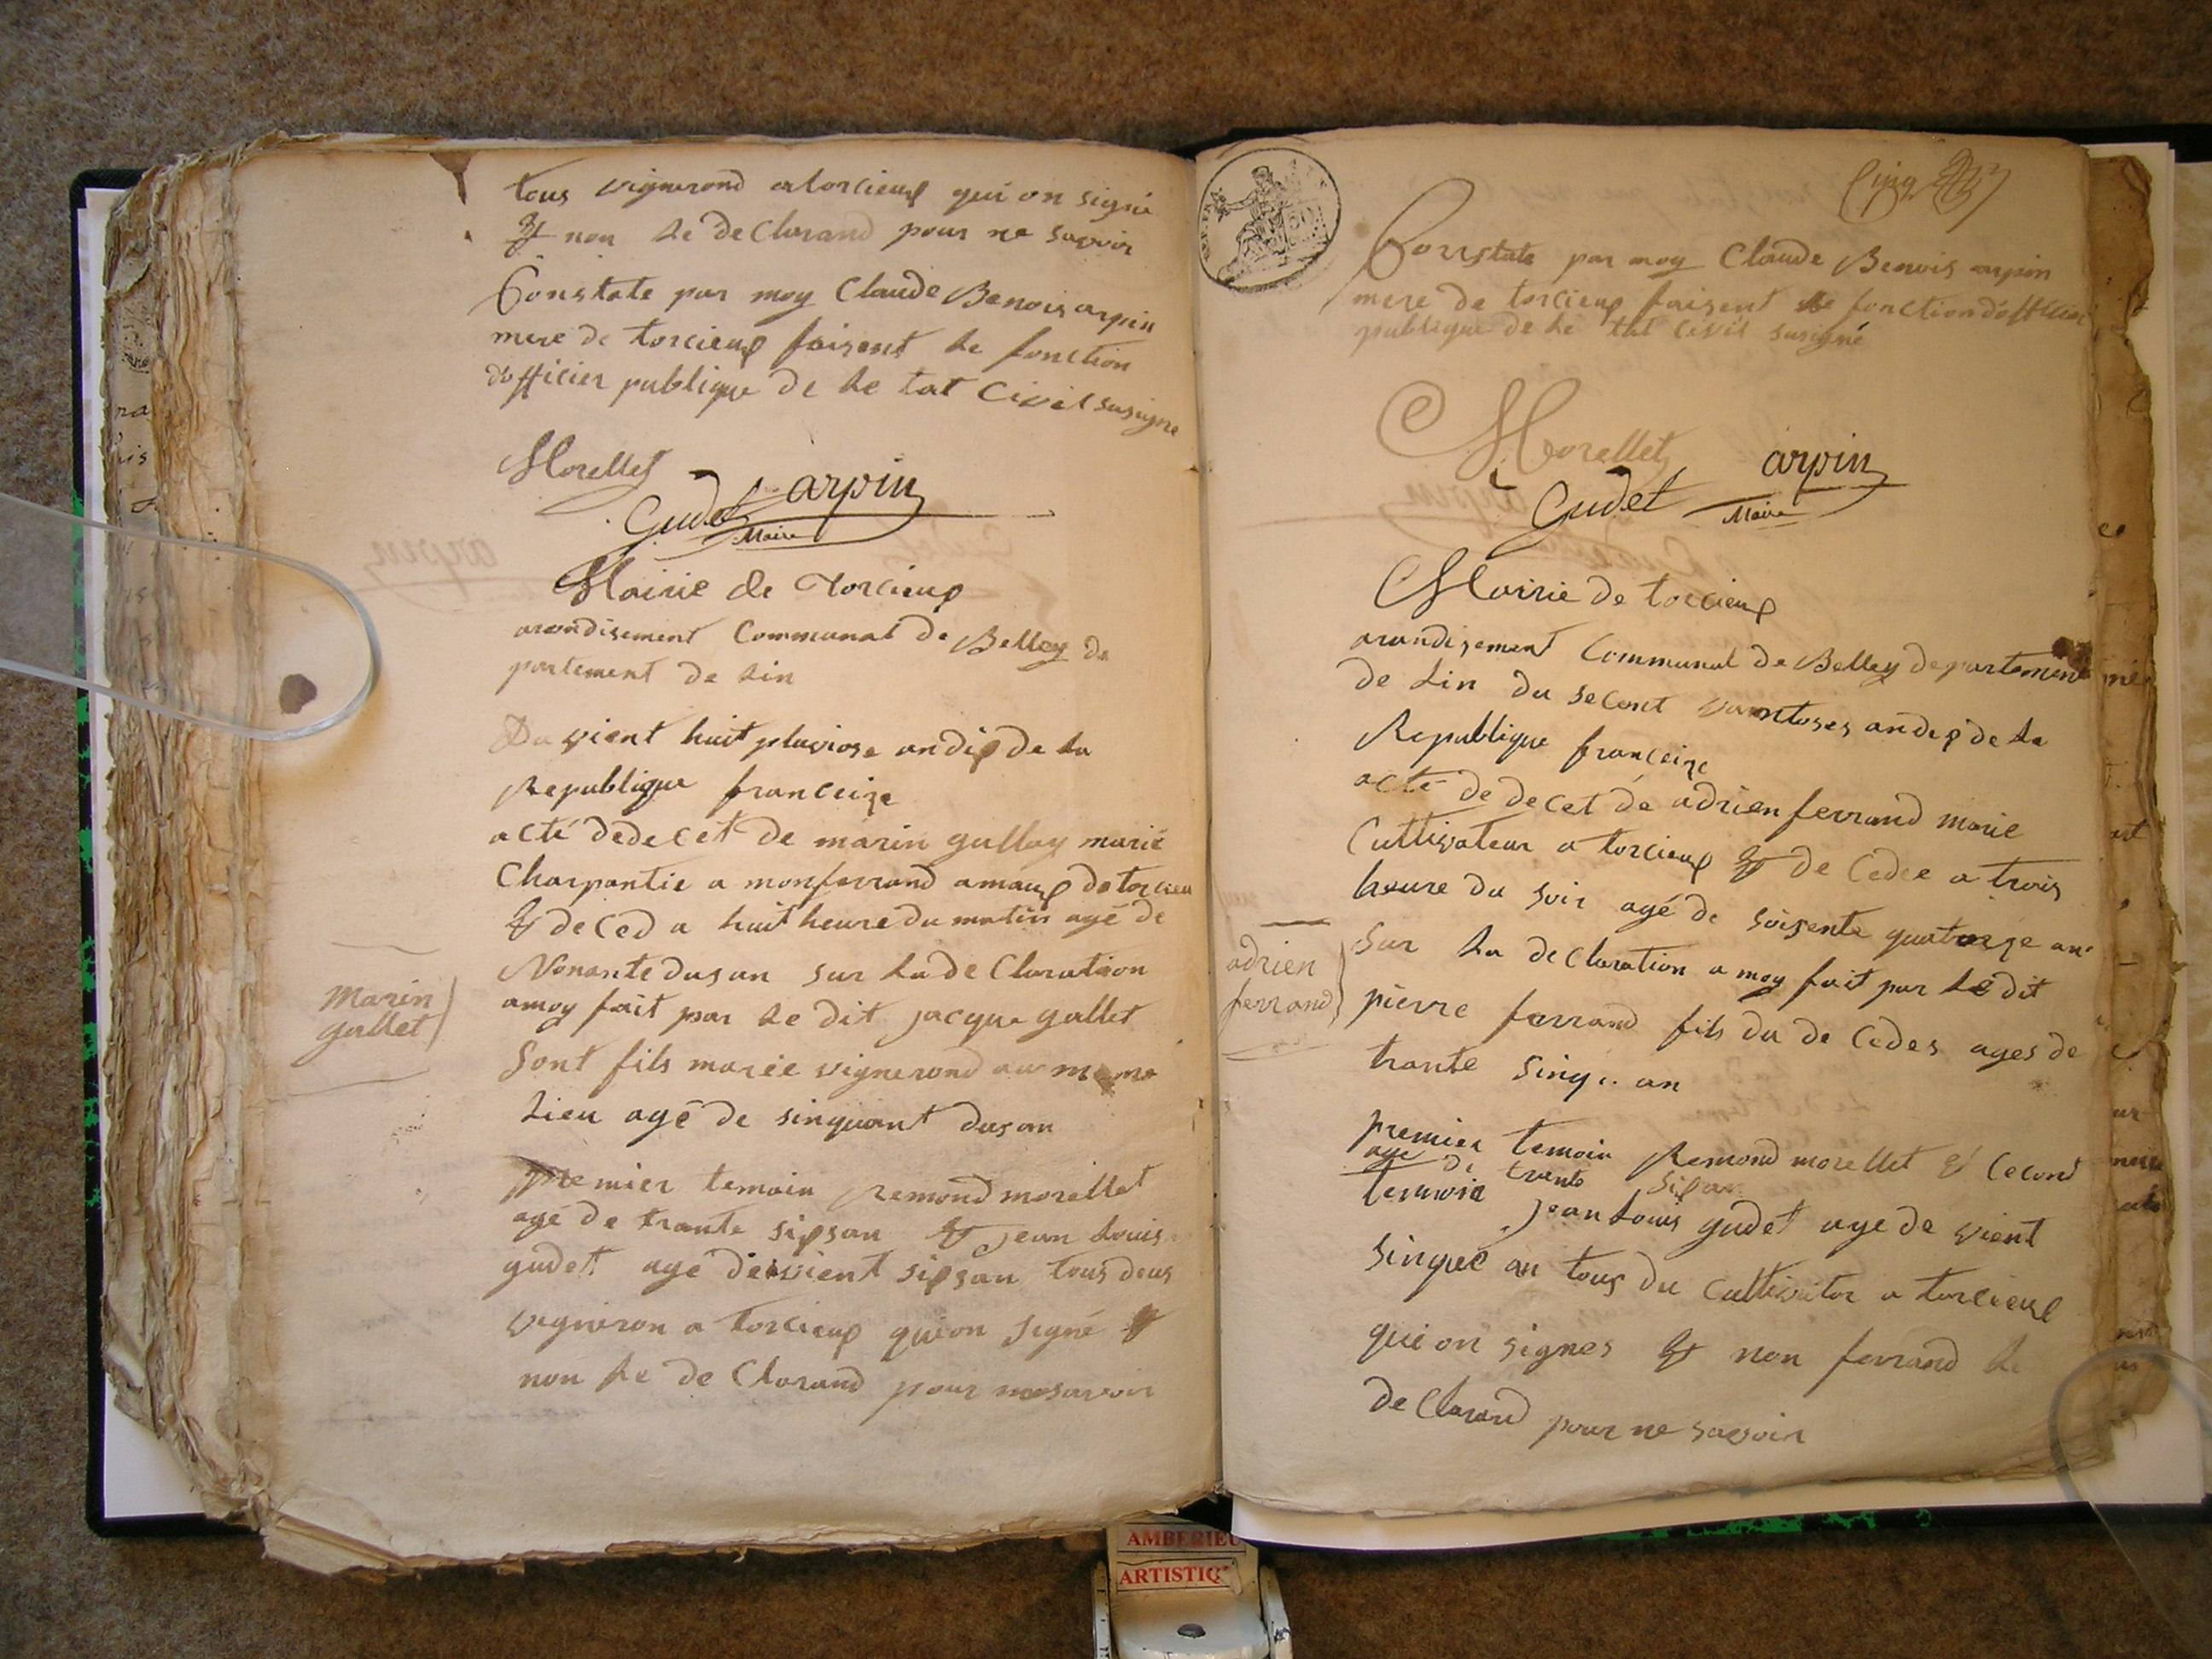 tous vignerond a torcieup qui on signé
& non le de Clarand pour ne savoir
Constate par moy Claude Benois arpin
mere de torcieup faisent le fonction
dofficier publique de le tat Civil susigne
Morellet
Gudet arpin
Maire
Mairie de Torcieup
arondisement Communal de Belley de
partement de Lin
Du vient huit pluviose an dip de la
Republique franceize
acté de decét de marin gallay marié
Charpantie a monferrand amaup de torcieu
& deced a huit heure du matin agé de
Nonante dus an sur la de Claration
a moy fait par le dit jacque gallet
Sont fils mariée vignerond au meme
Lieu agé de sinquant dus an
Marin
gallet
premier temoin remond morellet
agé de trante sipsan & jean Louis
gudet agé de vient sipsan tous deus
vigneron a torcieup qui on signé &
non le de Clarand pour ne savoir
Constate par moy Claude Benois arpin
mere de torcieup faisent le fonction dofficier
publique de le tat Civil susigné
Morellet arpin
Gudet Maire
Mairie de torcieup
arandisement Communal de Belley departement
de Lin du second vantoses an dep de la
Republique franceize
acté de decet de adrien ferrand marie
Cultivateur a torcieup & de Cedee a trois
heure du soir agé de soisente quatorze an
Sur la declaration a moy fait par le dit
pierre ferrand fils du de Cedes ages de
trante sinq an
adrien
ferrand
premier temoin Remond morellet & Cecond
age de trante sipan
temoin jean Louis gudet age de vient
singue an tous du Cultivator a torcieup
qui on signes & non ferrand le
de Clarand pour ne savoir
AMBERIEU
ARTISTIQ